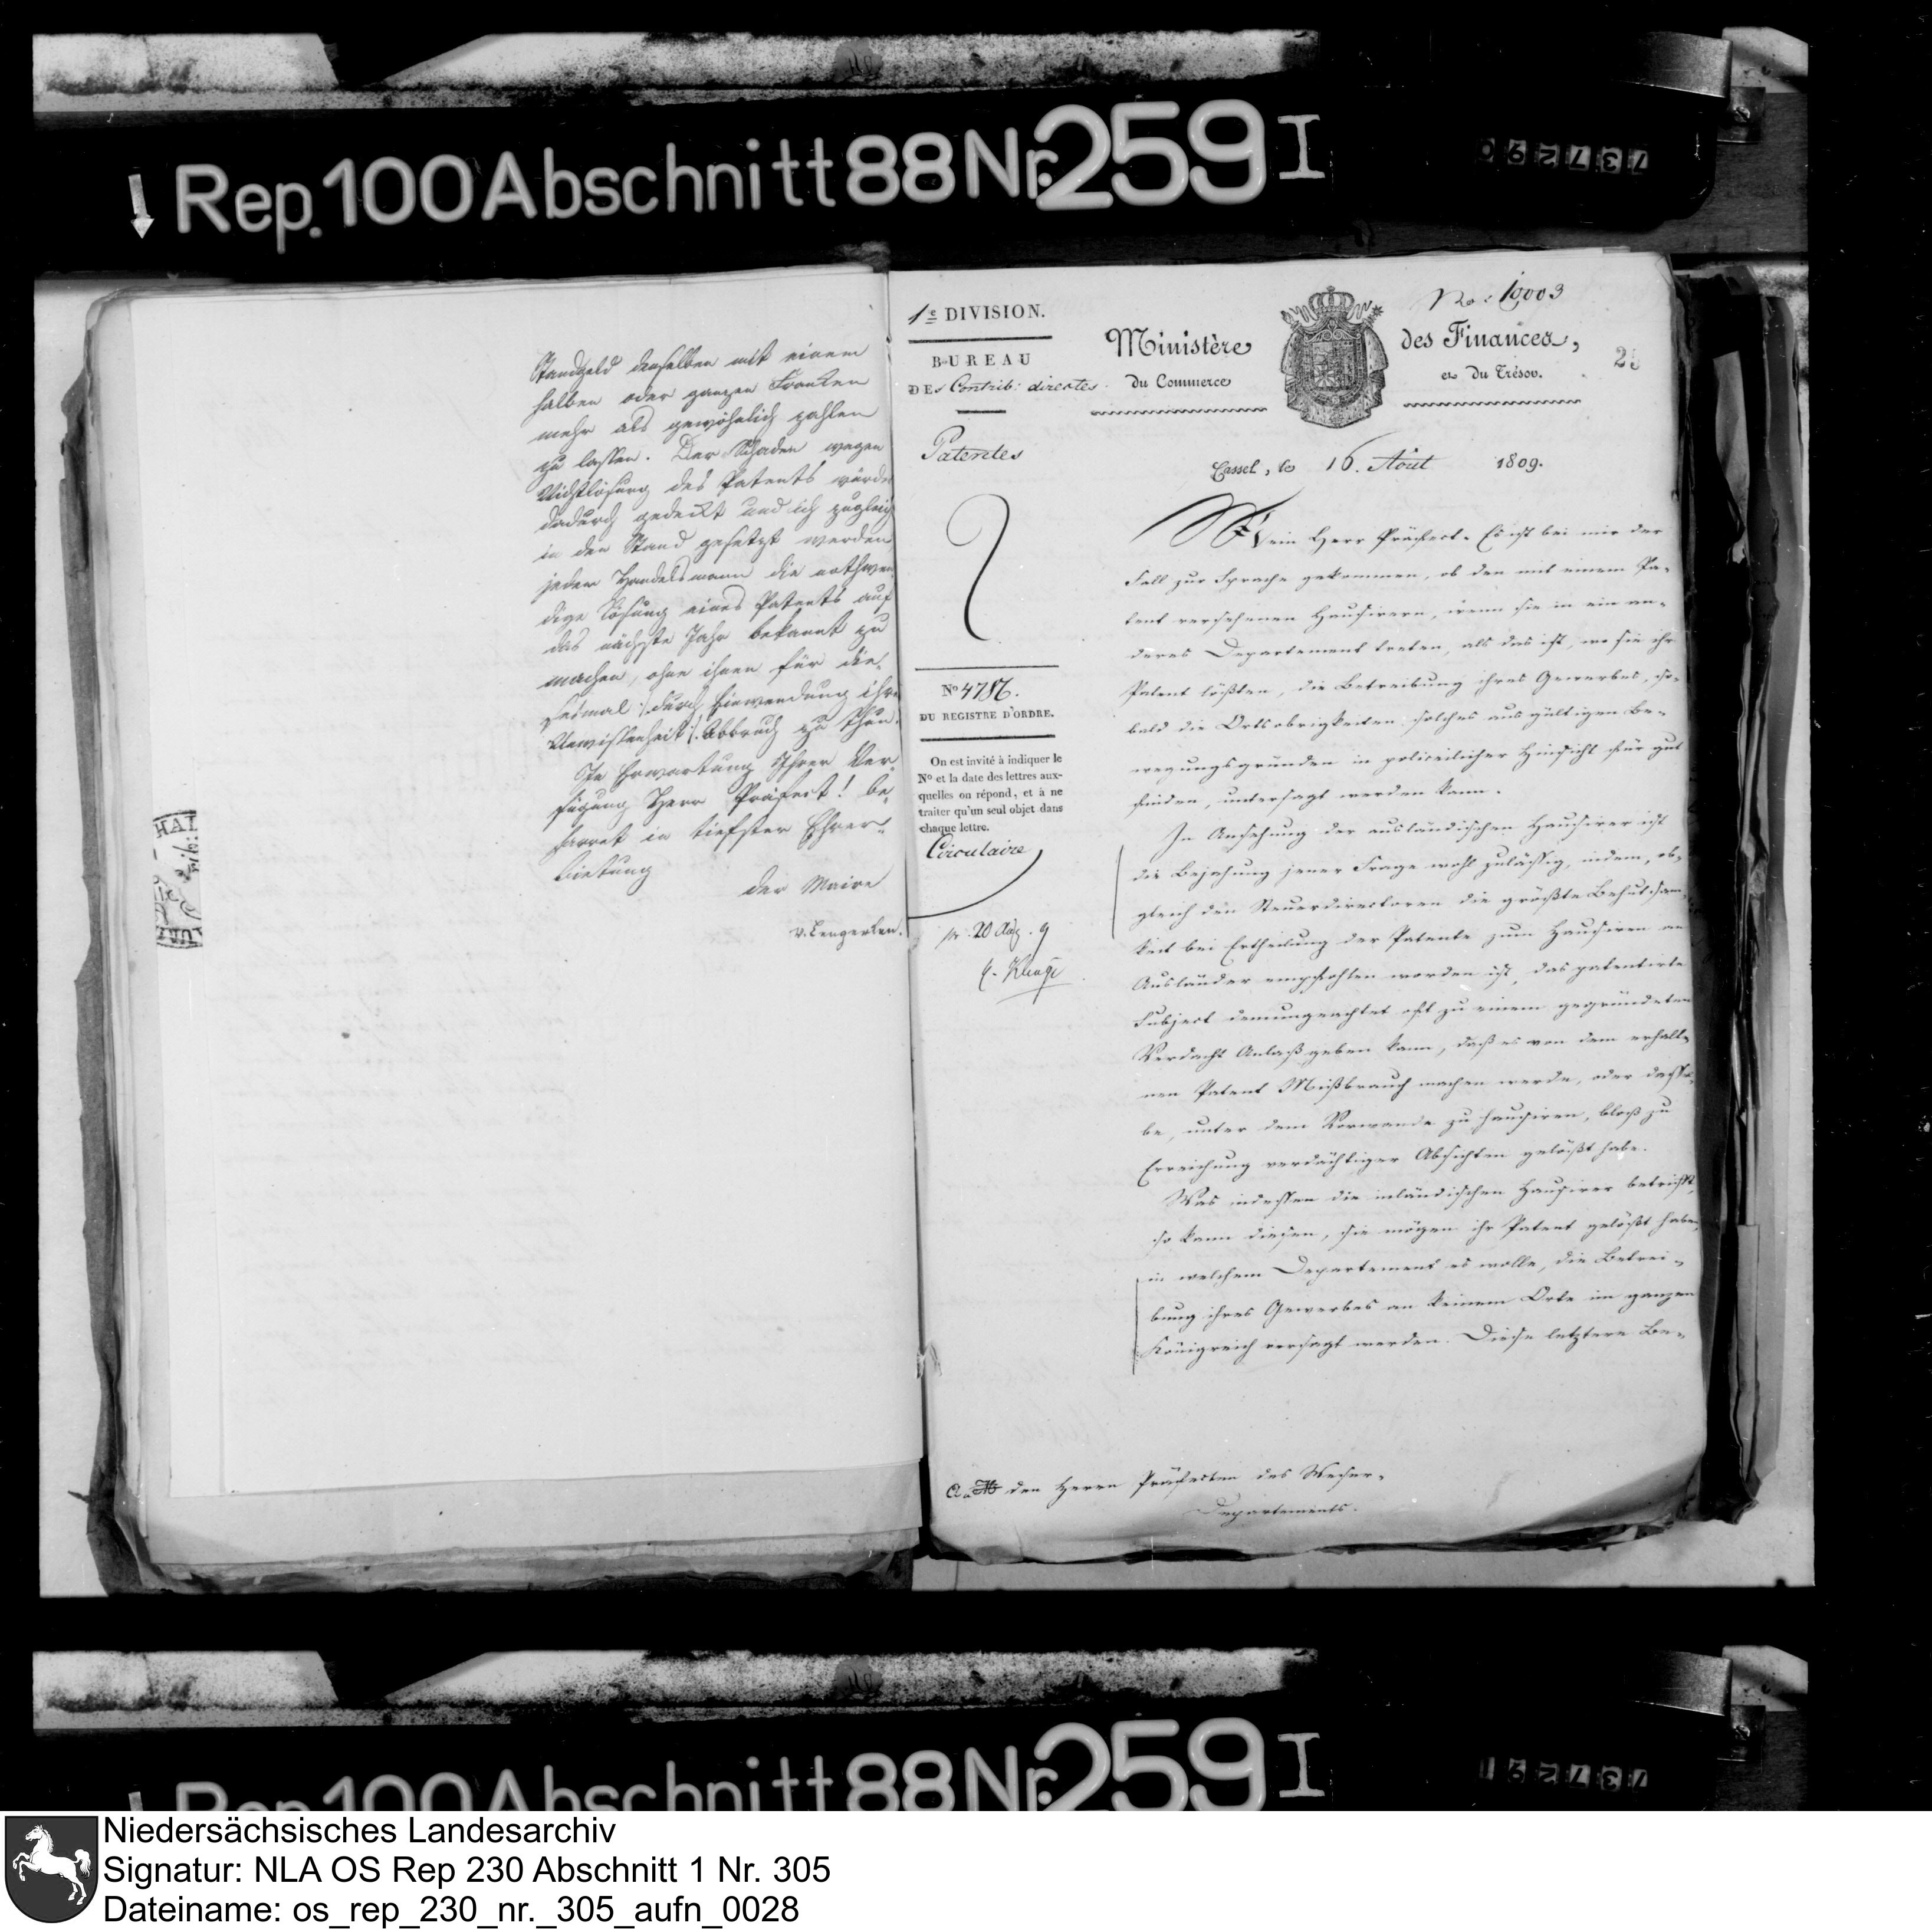 Rep. 100 Abschnitt 88 Nr. 259 I
092737
Standgeld denselben mit einem
halben oder ganzen Franken
mehr als gewöhnlich zahlen
zu lassen. Der Schaden wegen
Nichtlösung des Patents würde
dadurch gedeckt und ich zugleich
in den Stand gesetzt werden
jedem Handelsmann die nothwen
dige Lösung eines Patents auf
das nächste Jahr bekannt zu
machen, ohne ihnen für die-
sesmal /: durch Einwendung ihrer
Unwissenheit :/ Abbruch zu thun.
In Erwartung Ihrer Ver-
fügung Herr Präfect! be-
harret in tiefster Ehrer-
bietung
der Maire
v. Lengerken.
1e DIVISION.
BUREAU
DES Contrib: directes.
Patentes
No 4786.
DU REGISTRE D'ORDRE.
On est invité à indiquer le
No et la date des lettres aux-
quelles on répond, et à ne
traiter qu'un seul objet dans
chaque lettre.
Circulaire
pr. 20 Aug. 9
No: 10003
Ministère des Finances,
du Commerce et du Trésor.
25
Cassel, le 16. Août 1809.
Mein Herr Präfect. Es ist bei mir der
Fall zur Sprache gekommen, ob den mit einem Pa-
tent versehenen Hausirern, wenn sie in ein an-
deres Departement treten, als das ist, wo sie ihr
Patent lößten, die Betreibung ihres Gewerbes, so-
bald die Ortsobrigkeiten solches aus gültigen Be-
wegungsgründen in policeilicher Hinsicht für gut
finden, untersagt werden kann.
In Ansehung der ausländischen Hausirer ist
die Bejahung jener Frage wohl zulässig, indem, ob-
gleich den Steuerdirectoren die größte Behutsam-
keit bei Ertheilung der Patente zum Hausiren an
Ausländer empfohlen worden ist, das patentirte
Subject demungeachtet oft zu einem gegründeten
Verdacht Anlaß geben kann, daß es von dem erhalte-
nen Patent Mißbrauch machen werde, oder dassel-
be, unter dem Vorwande zu hausiren, bloß zu
Erreichung verdächtiger Absichten gelößt habe.
Was indessen die inländischen Hausirer betrifft,
so kann diesen, sie mögen ihr Patent gelößt haben,
in welchem Departement es wolle, die Betrei-
bung ihres Gewerbes an keinem Orte im ganzen
Königreich versagt werden. Diese letztere Be-
den Herrn Präfecten des Weser-
Departements.
Rep. 100 Abschnitt 88 Nr. 259 I
192737
Niedersächsisches Landesarchiv
Signatur: NLA OS Rep 230 Abschnitt 1 Nr. 305
Dateiname: os_rep_230_nr._305_aufn_0028